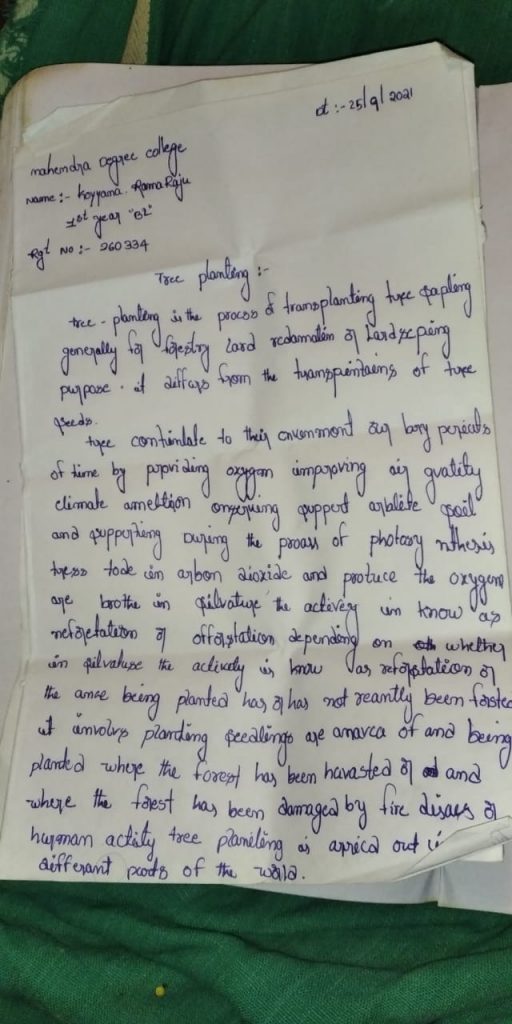 dt :- 25/9/2021
mahendra Degree college
Name :- Koyyana. RamaRaju
1st year "B2"
Rgt No :- 260334
Tree planting :-
tree - planting is the process of transplanting tree sapling
generally for forestry land redamation or Landscping
purpose. it differs from the transpentains of tree
seeds.
tree contimlate to their envenment our long periods
of time by providing oxygen improving air quatity
climate amelition onserving support arblife soil
and supporting During the proass of photosy nthesis
tress tade in arbon dioxide and protuce the oxygene
are brothe in silvature the activety in know as
reforetateion or offorstation depending on whether
in silvatuse the activaly is know as reforstation or
the area being planted has or has not reantly been forsted
it involvs planding seedlings are anarca of and being
planded where the forest has been havasted or and
where the forest has been damaged by fire diseas or
hurman actity tree planeting is arried out in
differant parts of the world.